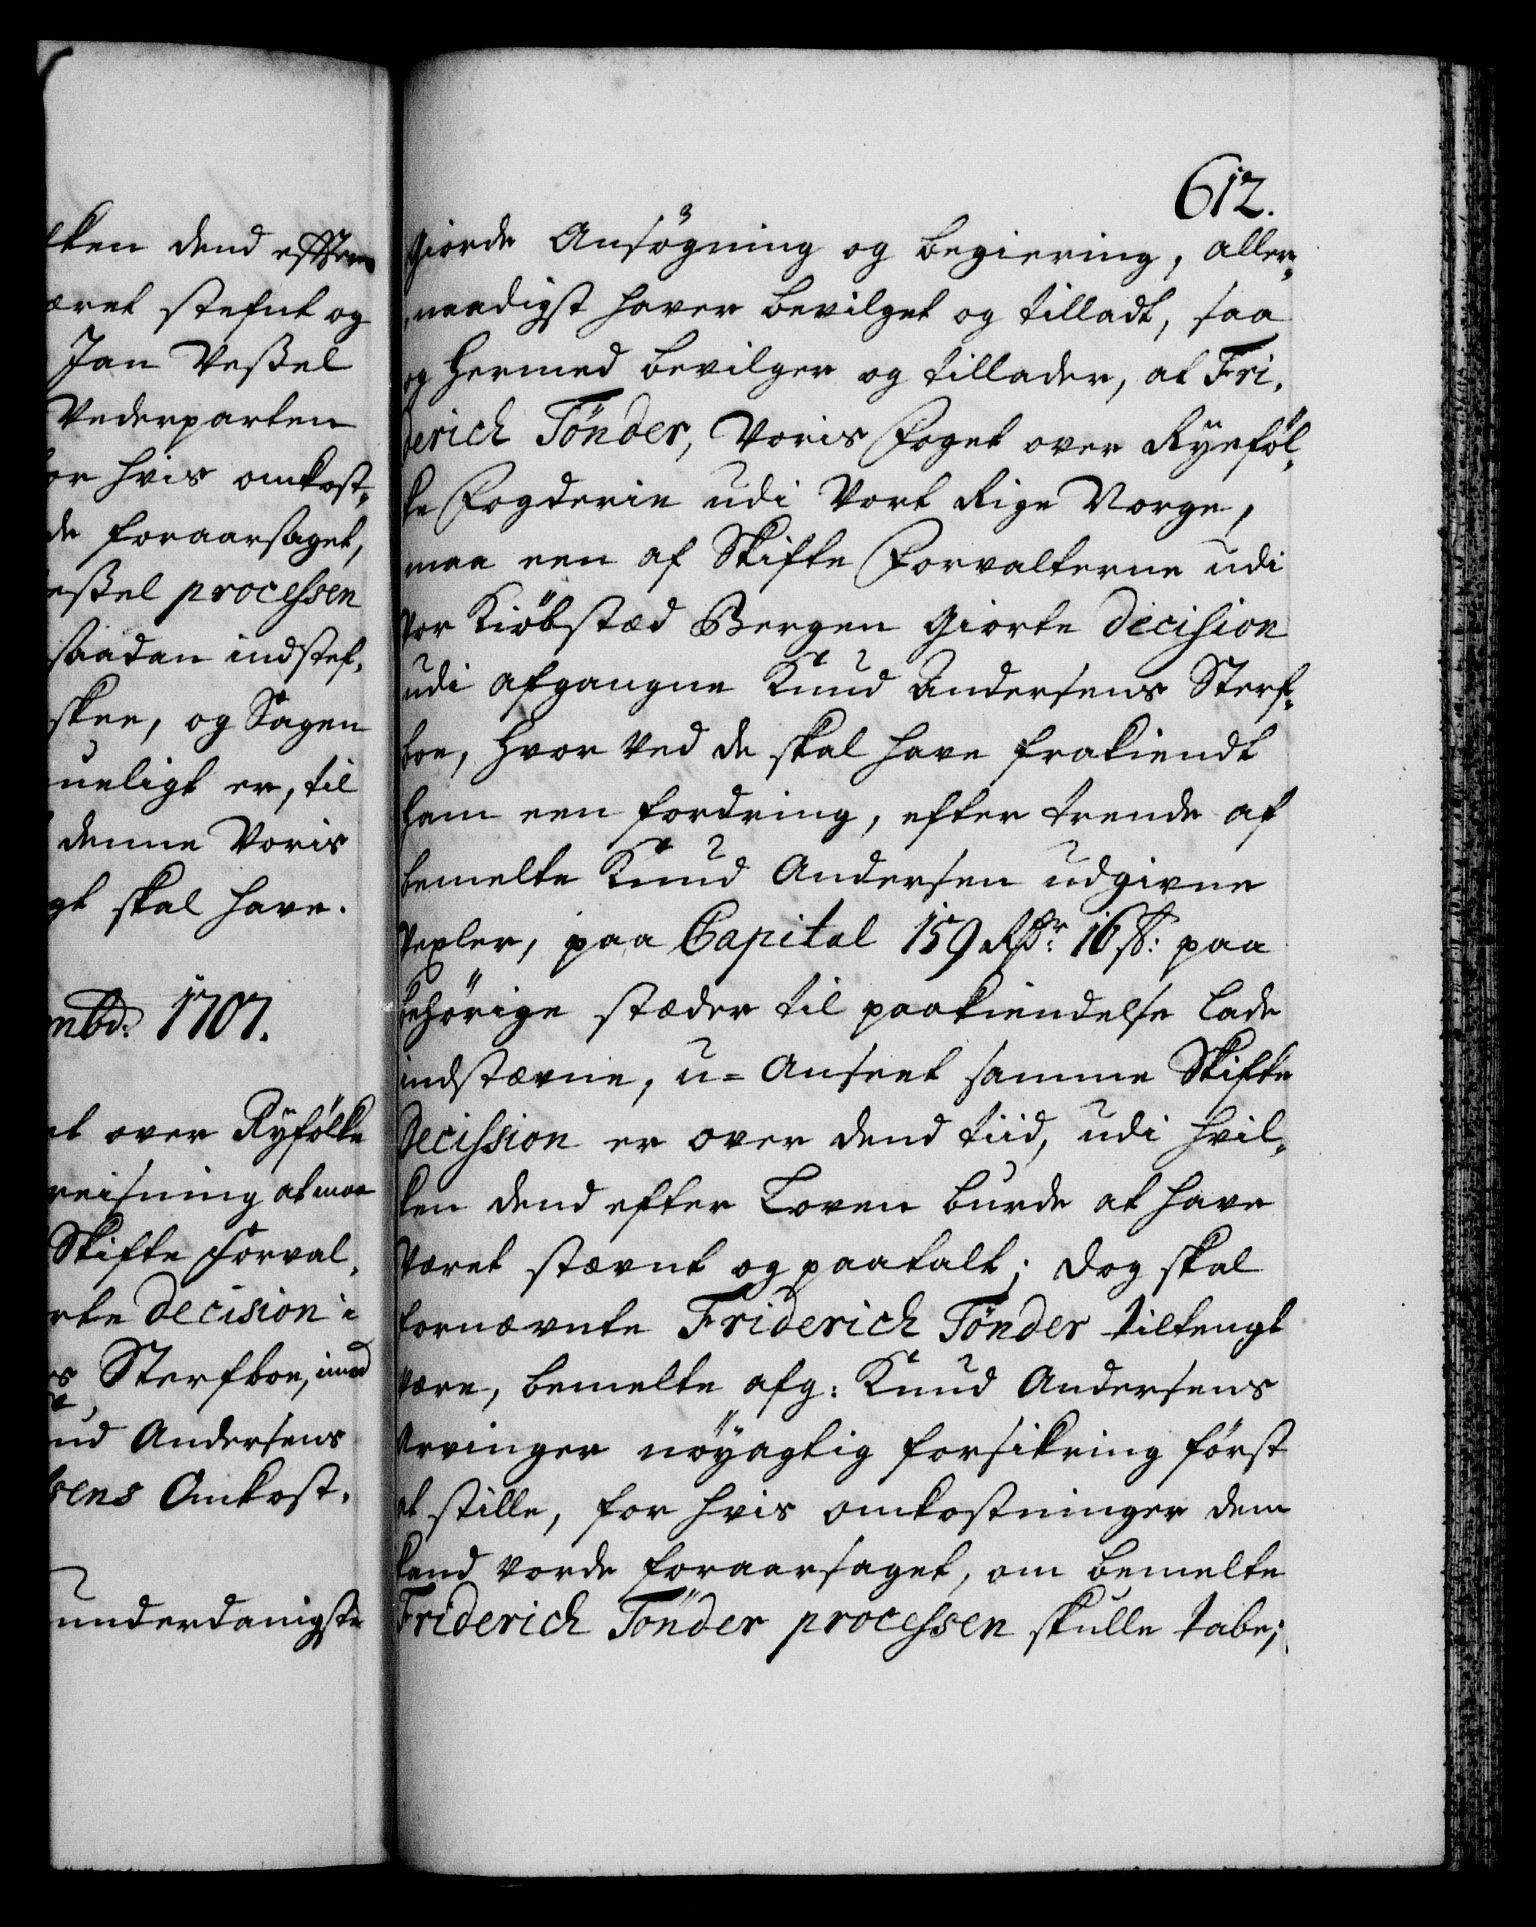 ken dend effter
æret stefnt og
Jan Veßel
Vederparten
or hvis omkost-
de foraarsaget,
eßel processen
saadan indstef-
skee, og Sagen
ueligt er, til
denne Voris
gt skal have.
mbd: 1707.
et over Ryfølke
reisning at maa
Skifte Forval-
rte decision i
s Sterfboe, imod
ud Andersens
sens Omkost-
underdanigste
612.
giorde Ansøgning og begiering, aller-
naadigst haver bevilget og tilladt, saa
og hermed bevilger og tillader, at Fri-
derich Tönder, Voris Foget over Ryeföl-
ke Fogderie udi Vort Rige Norge,
maa een af Skifte Forvalterne udi
vor Kiöbstæd Bergen giorte decision
udi afgangne Knud Andersens Sterf-
boe, hvor ved de skal have frakiendt
ham een fordring, efter trende af
bemelte Knud Andersen udgivne
Vexler, paa Capital 159 Rdr: 16 ß: paa
behörige stæder til paakiendelse lade
indstævne, u-Anseet samme Skifte
Decission er over dend tiid, udi hvil-
ken dend efter Loven burde at have
været stævnt og paatalt; dog skal
fornævnte Friderich Tönder tiltengt
være, bemelte afg: Knud Andersens
Arvinger nöyagtig forsikring först
at stille, for hvis omkostninger dem
kand vorde foraarsaget, om bemelte
Friderich Tönder processen skulle tabe;